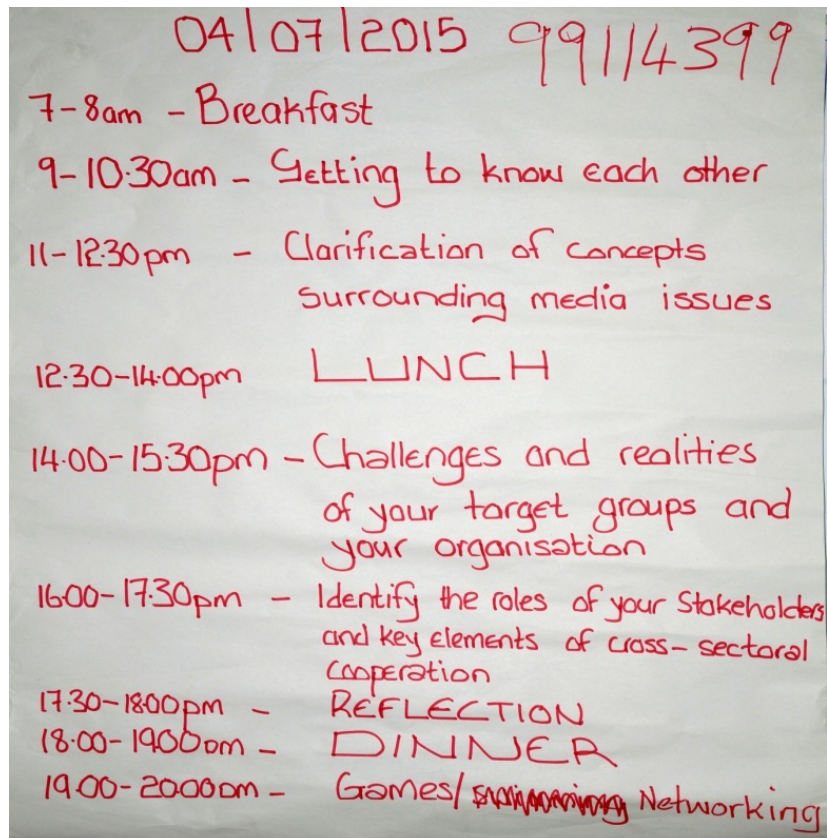 04/07/2015 99114399
7-8am - Breakfast
9-10.30am - Getting to know each other
11-12.30pm - Clarification of concepts
surrounding media issues
12.30-14.00pm LUNCH
14.00-15.30pm - Challenges and realities
of your target groups and
your organisation
16.00-17.30pm - Identify the roles of your Stakeholders
and key elements of cross-sectoral
cooperation
17.30-18.00pm - REFLECTION
18.00-19.00pm - DINNER
19.00-20.00pm - Games/ Networking